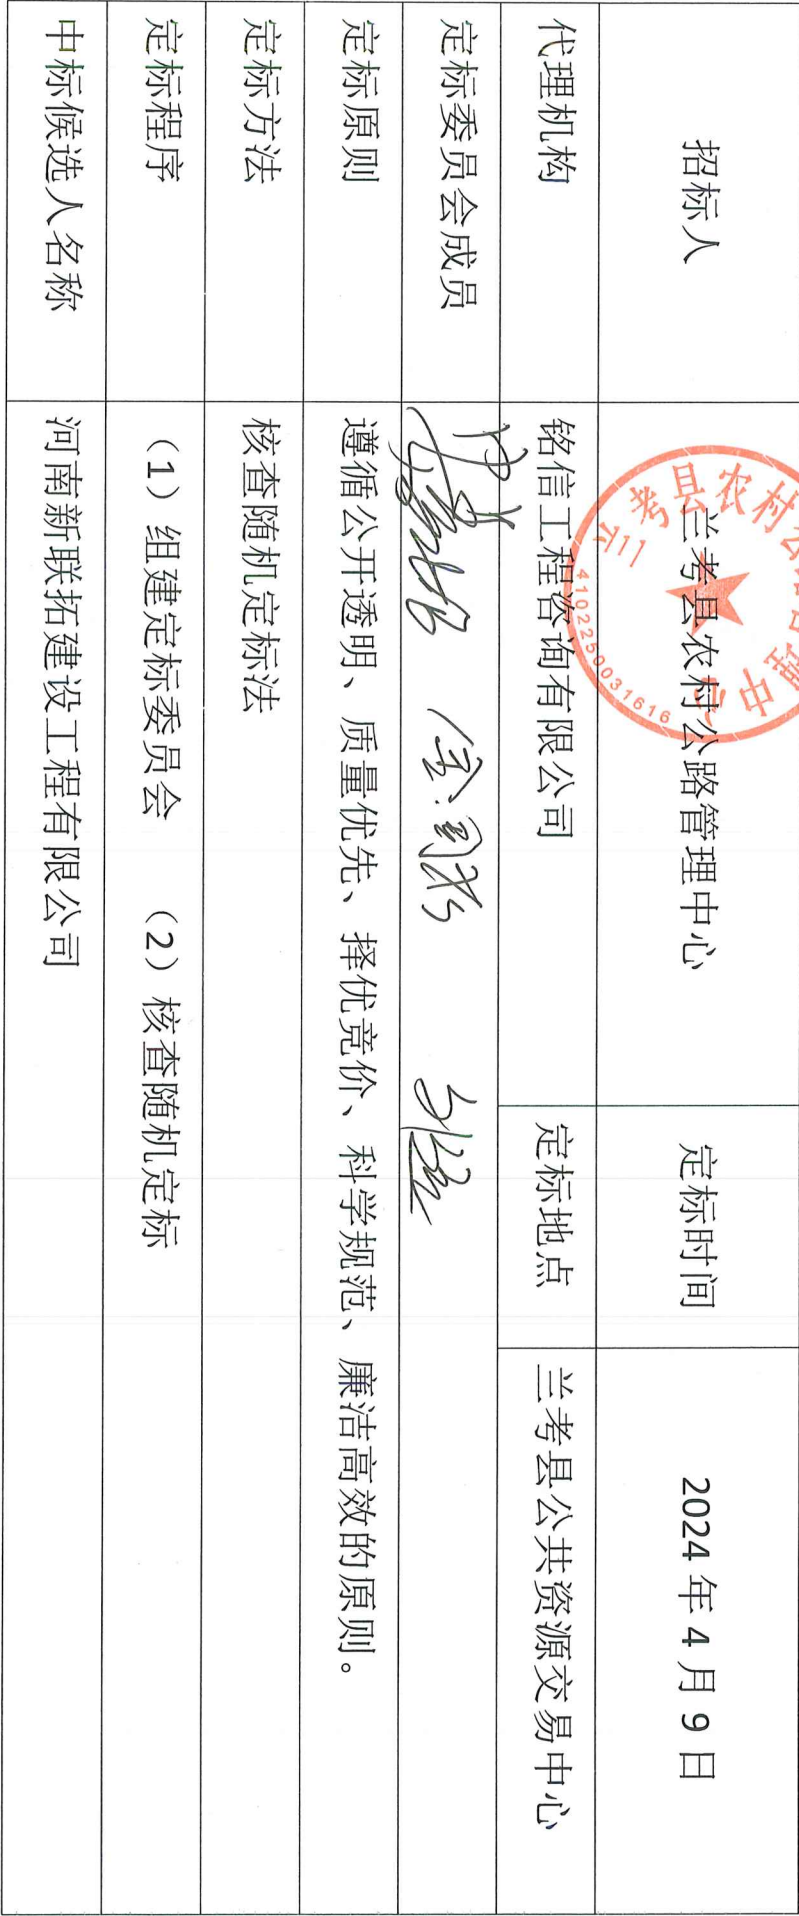 招标人 兰考县农村公路管理中心 定标时间 2024 年 4 月 9 日
代理机构 铭信工程咨询有限公司 定标地点 兰考县公共资源交易中心
定标委员会成员
定标原则 遵循公开透明、质量优先、择优竞价、科学规范、廉洁高效的原则。
定标方法 核查随机定标法
定标程序 （1）组建定标委员会 （2）核查随机定标
中标候选人名称 河南新联拓建设工程有限公司
4102250031616